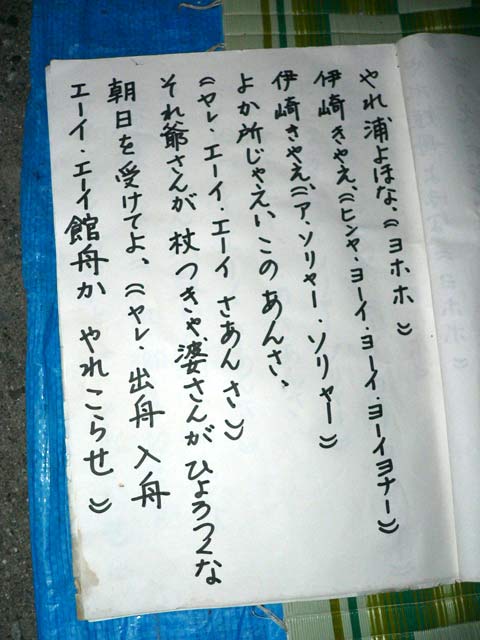 やれ浦よほな、《ヨホホ》
伊崎きゃえ、《ヒンヤ・ヨーイ・ヨーイ・ヨーイヨナー》
伊崎きゃえ、《ア・ソリャー・ソリャー》
よか所じゃえい このあんさ、
《ヤレ・エーイ・エーイ さあんさ》
それ爺さんが 杖つきゃ、婆さんが ひょろつくな
朝日を受けてよ、《ヤレ・出舟 入舟
エーイ・エーイ 館舟か やれこらせ》